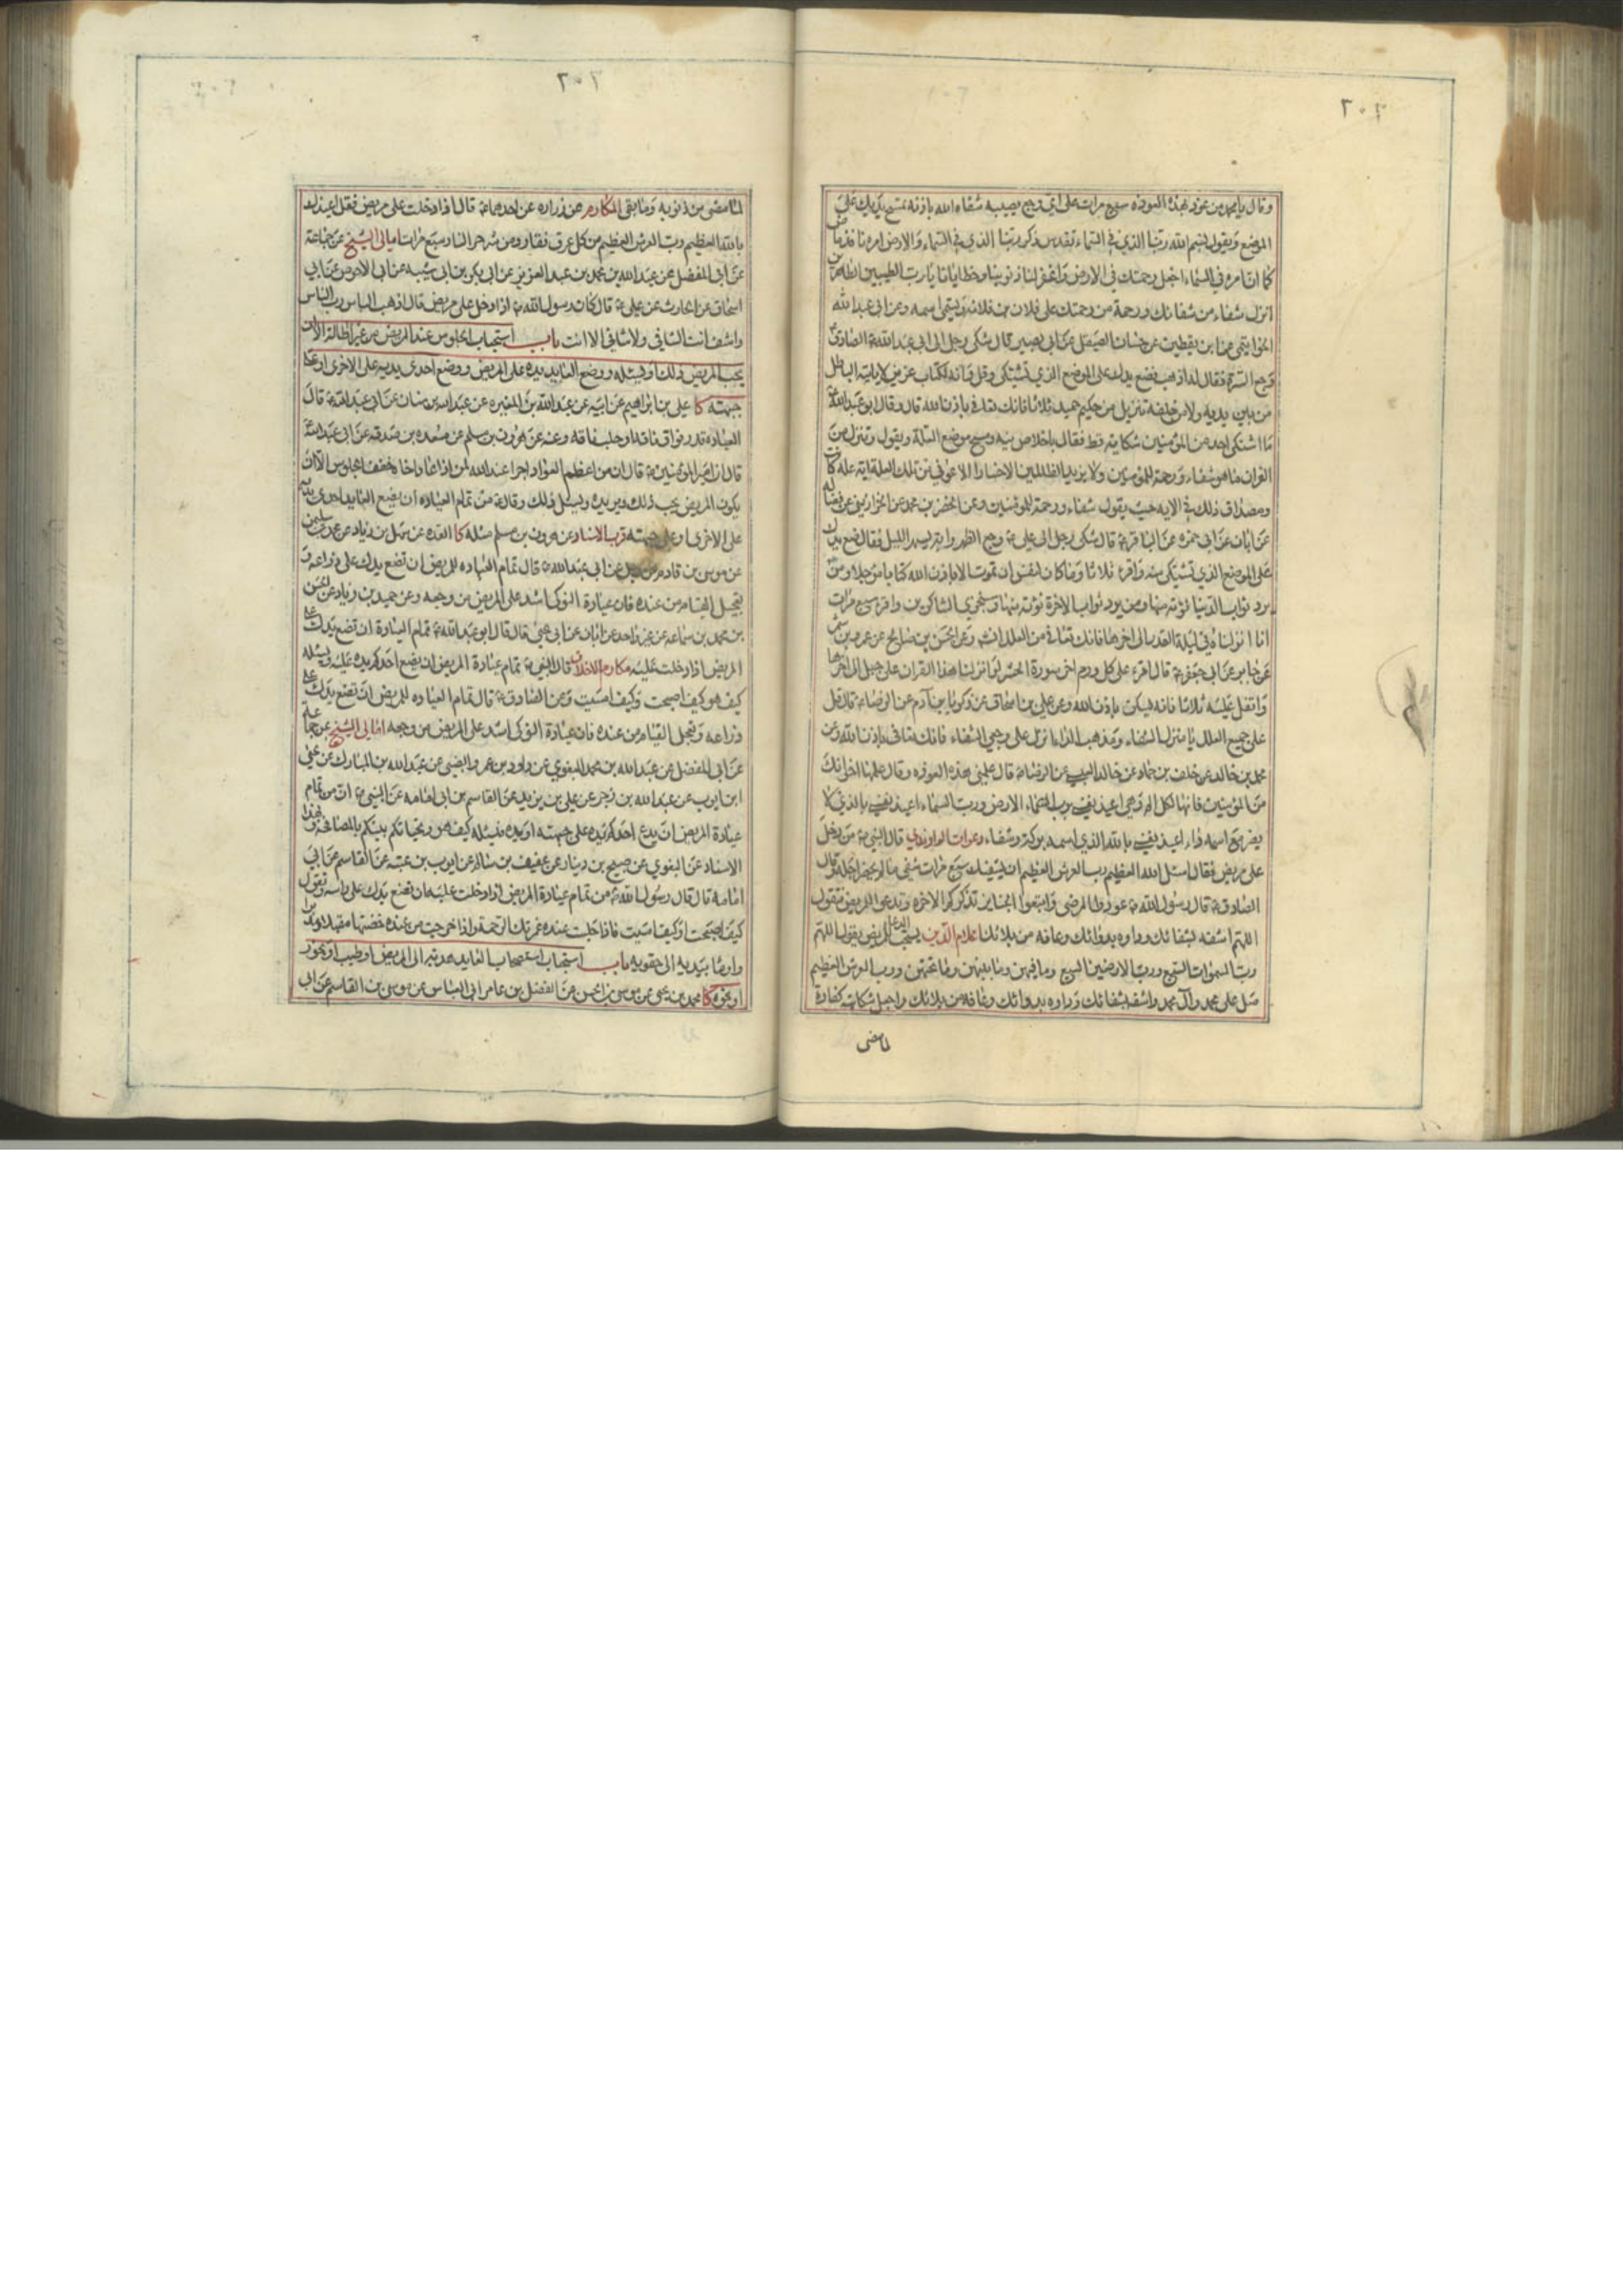 ٣٠٢
وقال يا محمد من عوذ بهذه العوذه سبع مرات على اي وجع يصيبه شفاه الله باذنه تمسح بيديك على
الموضع وتقول بسم الله ربنا الذي في السماء تقدس ذكره ربنا الذي في السماء والارض امره نافذ ماض
كما ان امره في السماء اجعل رحمتك في الارض واغفر لنا ذنوبنا وخطايانا يا رب الطيبين الطاهرين
انزل شفاء من شفائك ورحمة من رحمتك على فلان بن فلانه ويسمي اسمه وعن ابي عبد الله
الخواتيمي عن ابن يقطين عن حسان الصيقل عن ابي بصير قال شكى رجل الى ابي عبد الله الصادق
وجع السرة فقال له اذهب فضع يدك على الموضع الذي تشتكي وقل وانه لكتاب عزيز لا ياتيه الباطل
من بين يديه ولا من خلفه تنزيل من حكيم حميد ثلاثا فانك تعافى باذن الله قال وقال ابو عبد الله
ما اشتكى احد من المؤمنين شكاية قط فقال باخلاص نيه ومسح موضع العلة ويقول وننزل من
القران ما هو شفاء ورحمة للمؤمنين ولا يزيد الظالمين الا خسارا الا عوفي من تلك العلة اية علة كانت
ومصداق ذلك في الايه حيث يقول شفاء ورحمة للمؤمنين وعن الخضر بن محمد عن الخوارزمي عن فضاله
عن ابان عن ابي حمزه عن الباقر ع قال شكى رجل الى علي ع وجع الظهر وانه يسهر الليل فقال ضع يدك
على الموضع الذي تشتكي منه واقرء ثلاثا وما كان لنفس ان تموت الا باذن الله كتابا مؤجلا ومن
يرد ثواب الدنيا نؤته منها ومن يرد ثواب الاخرة نؤته منها وسنجزي الشاكرين واقرء سبع مرات
انا انزلناه في ليلة القدر الى اخرها فانك تعافى من العلل انش وعن الحسن بن صالح عن عمرو بن شمر
عن جابر عن ابي جعفر ع قال اقرء على كل ورم اخر سورة الحشر لو انزلنا هذا القران على جبل الى اخرها
واتفل عليه ثلاثا فانه يسكن باذن الله وعن علي بن اسحاق عن زكريا بن آدم عن الرضا ع قال قل
على جميع العلل يا منزل الشفاء ومذهب الداء انزل على وجعي الشفاء فانك تعافى باذن الله وعن
محمد بن خالد عن خلف بن حماد عن خالد العبسي عن الرضا ع قال علمني هذه العوذه وقال علمها اخوانك
من المؤمنين فانها لكل الم وهي اعيذ نفسي برب الارض ورب السماء اعيذ نفسي بالذي لا
يضر مع اسمه داء اعيذ نفسي بالله الذي اسمه بركة وشفاء دعوات الراوندي قال النبي ص من دخل
على مريض فقال اسئل الله العظيم رب العرش العظيم ان يشفيك سبع مرات شفي ما لم يحضر اجله وقال
الصادق ع قال رسول الله ص عودوا المرضى واتبعوا الجنايز تذكركم الاخره وتدعو للمريض فتقول
اللهم اشفه بشفائك وداوه بدوائك وعافه من بلائك اعلام الدين يستحب الدعا للمريض يقول اللهم
رب السموات السبع ورب الارضين السبع وما فيهن وما بينهن وما تحتهن ورب العرش العظيم
صل على محمد وال محمد واشفه بشفائك وداوه بدوائك وعافه من بلائك واجعل شكاته كفارة
لما مضى
٣٠٢
لما مضى من ذنوبه وما بقى المكارم عن زراره عن احدهما ع قال اذا دخلت على مريض فقل اعيذك
بالله العظيم رب العرش العظيم من كل عرق نفار ومن شر حر النار سبع مرات امالي الشيخ عن جماعة
عن ابي المفضل عن عبد الله بن محمد بن عبد العزيز عن ابي بكر بن ابي شيبه عن ابي الاحوص عن ابي
اسحاق عن الحارث عن علي ع قال كان رسول الله ص اذا دخل على مريض قال اذهب الباس رب الناس
واشف انت الشافي ولا شافي الا انت باب استحباب الجلوس عند المريض من غير اطالة الا ان
يحب المريض ذلك او يسئله ووضع العايد يده على المريض ووضع احدى يديه على الاخرى او على
جبهته كا علي بن ابراهيم عن ابيه عن عبد الله بن المغيره عن عبد الله بن سنان عن ابي عبد الله ع قال
العياده قدر فواق ناقة او حلب ناقه وعنه عن هرون بن مسلم عن مسعده بن صدقه عن ابي عبد الله
قال ان امير المؤمنين ع قال ان من اعظم العواد اجرا عند الله لمن اذا عاد اخاه خفف الجلوس الا ان
يكون المريض يحب ذلك ويريده ويسئل ذلك وقال ع من تمام العياده ان يضع العايد احدى يديه
على الاخرى او على جبهته قرب الاسناد عن هرون بن مسلم مثله كا العده عن سهل بن زياد عن
عن موسى بن قادم عن رجل عن ابي عبد الله ع قال تمام العياده للمريض ان تضع يدك على ذراعه و
تعجل القيام من عنده فان عيادة النوكى اشد على المريض من وجعه وعن حميد بن زياد عن الحسن
بن محمد بن سماعه عن غير واحد عن ابان عن ابي يحيى قال قال ابو عبد الله ع تمام العيادة ان تضع يدك على
المريض اذا دخلت عليه مكارم الاخلاق قال النبي ص تمام عيادة المريض ان يضع احدكم يده عليه ويسئله
كيف هو كيف اصبحت وكيف امسيت وعن الصادق ع قال تمام العياده للمريض ان تضع يدك على
ذراعه وتعجل القيام من عنده فان عيادة النوكى اشد على المريض من وجعه امالي الشيخ عن جماعة
عن ابي المفضل عن عبد الله بن محمد البغوي عن داود بن عمرو الضبي عن عبد الله بن المبارك عن يحيى
ابن ايوب عن عبد الله بن زجر عن علي بن يزيد عن القاسم بن ابي امامه عن النبي ص ان من تمام
عيادة المريض ان يدع احدكم يده على جبهته او يده فيسئله كيف هو وتحياتكم بينكم بالمصافحة وبهذا
الاسناد عن البغوي عن صبيح بن دينار عن عفيف بن سالم عن ايوب بن عتبه عن القاسم عن ابي
امامة قال قال رسول الله ص من تمام عيادة المريض اذا دخلت عليه ان تضع يدك على راسه وتقول
كيف اصبحت او كيف امسيت فاذا جلست عنده غمرتك الرحمة واذا خرجت من عنده خضتها مقبلا ومدبرا
واومأ بيديه الى حقويه باب استحباب استصحاب العايد هديه الى المريض او طيب او بخور
او نحوه كا محمد بن يحيى عن موسى بن الحسن عن الفضل بن عامر ابي العباس عن موسى بن القاسم عن ابي